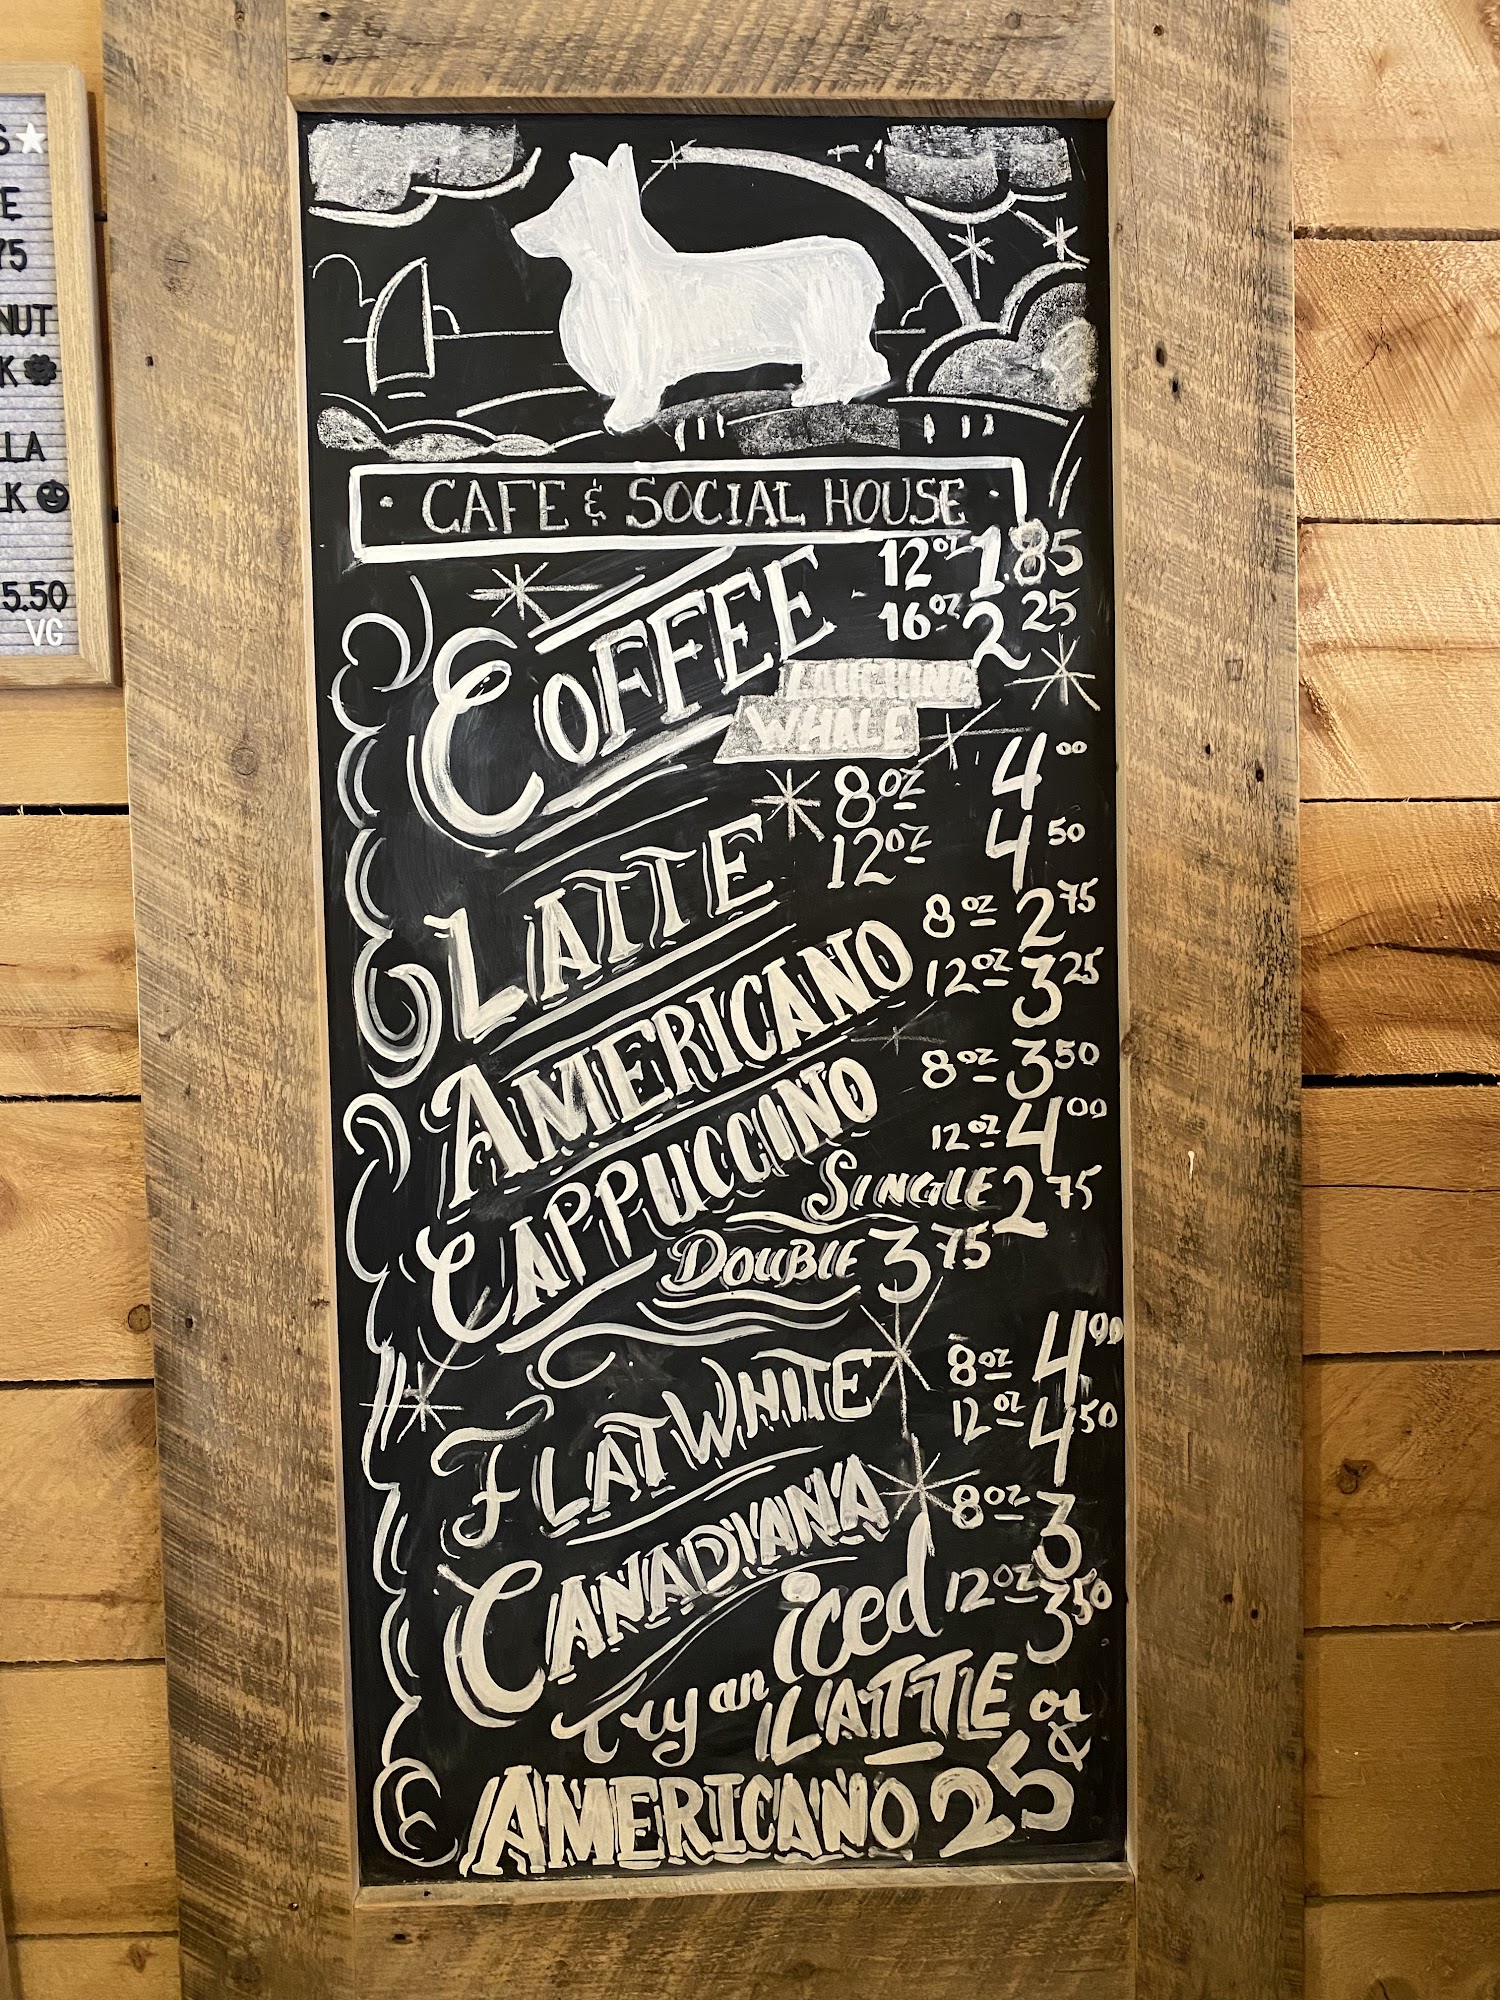 S
E
75
NUT
K
LLA
LK
5.50
VG
· CAFE & SOCIAL HOUSE ·
COFFEE - 12oz 1.85
16oz 2 25
LAUGHING
WHALE
LATTE 8oz 4 00
12oz 4 50
AMERICANO 8oz 2 75
12oz 3 25
CAPPUCCINO 8oz 3 50
12oz 4 00
SINGLE 2 75
DOUBLE 3 75
FLAT WHITE 8oz 4 00
12oz 4 50
CANADIANA 8oz 3
12oz 3 50
Try an iced
LATTE or
AMERICANO 25¢